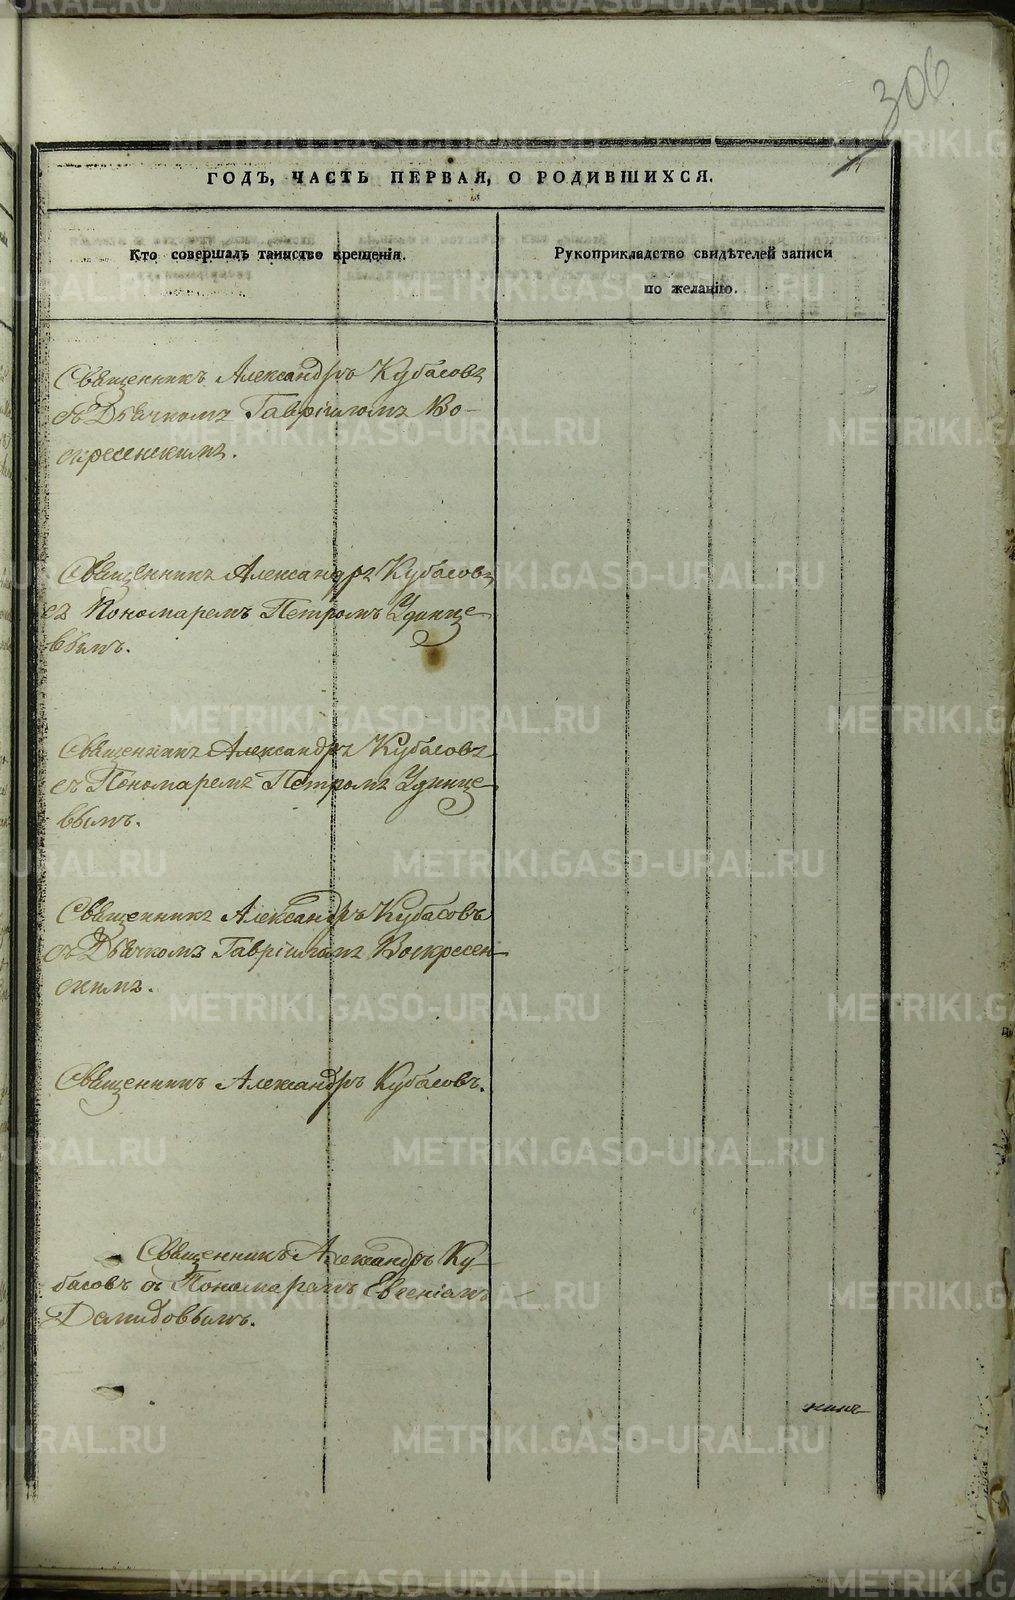 306
ГОДЪ, ЧАСТЬ ПЕРВАЯ, О РОДИВШИХСЯ.
Кто совершалъ таинство крещенія.
Рукоприкладство свидѣтелей записи
по желанію.
Священникъ Александръ Кубасовъ
съ Дьячкомъ Гавріиломъ Во-
скресенскимъ.
Священникъ Александръ Кубасовъ
съ Пономаремъ Петромъ Удинце
вымъ.
Священникъ Александръ Кубасовъ
съ Пономаремъ Петромъ Удинце
вымъ.
Священникъ Александръ Кубасовъ
съ Дьячкомъ Гавріиломъ Воскресен-
скимъ.
Священникъ Александръ Кубасовъ.
Священникъ Александръ Ку-
басовъ съ Пономаремъ Евгеніемъ
Демидовымъ.
METRIKI.GASO-URAL.RU